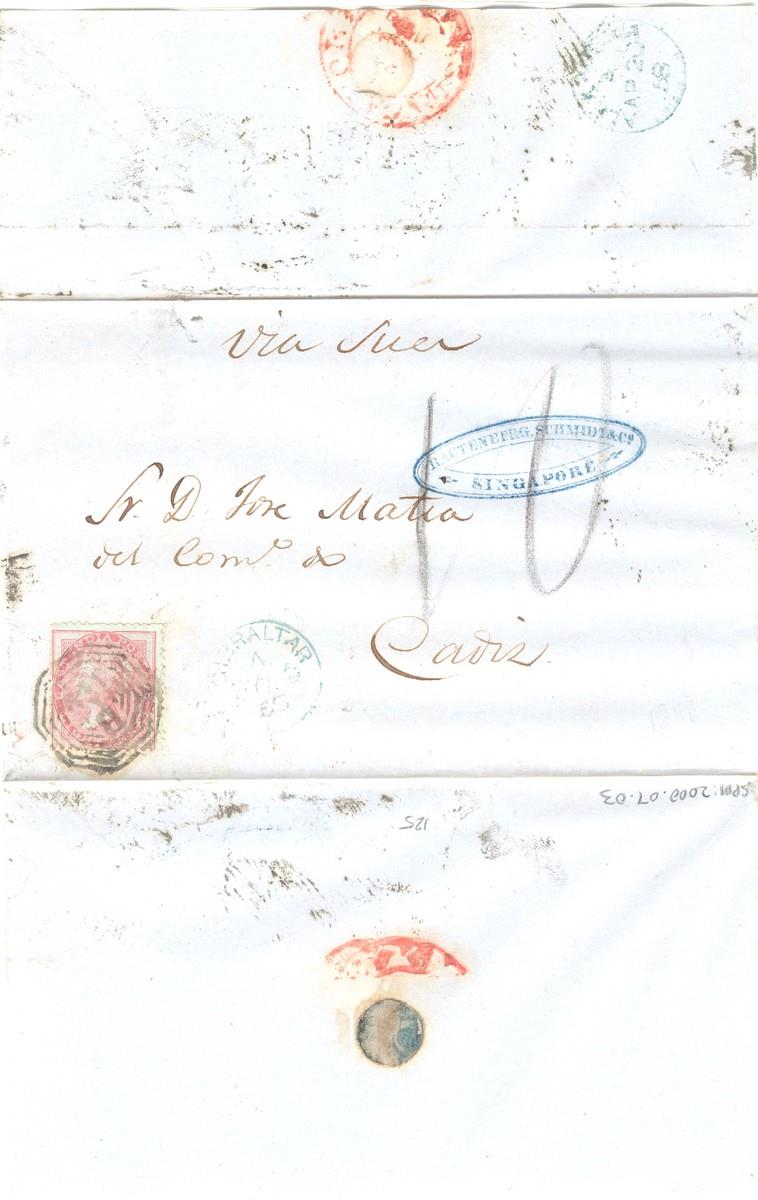 AP 20
58
via Suez
10
RAUTENBERG, SCHMIDT & Cº
SINGAPORE
Sr. D. Jose Matia
del Comº de
Cadiz
EAST INDIA POSTAGE
B
GIBRALTAR
125
SPM: 2002.07.03